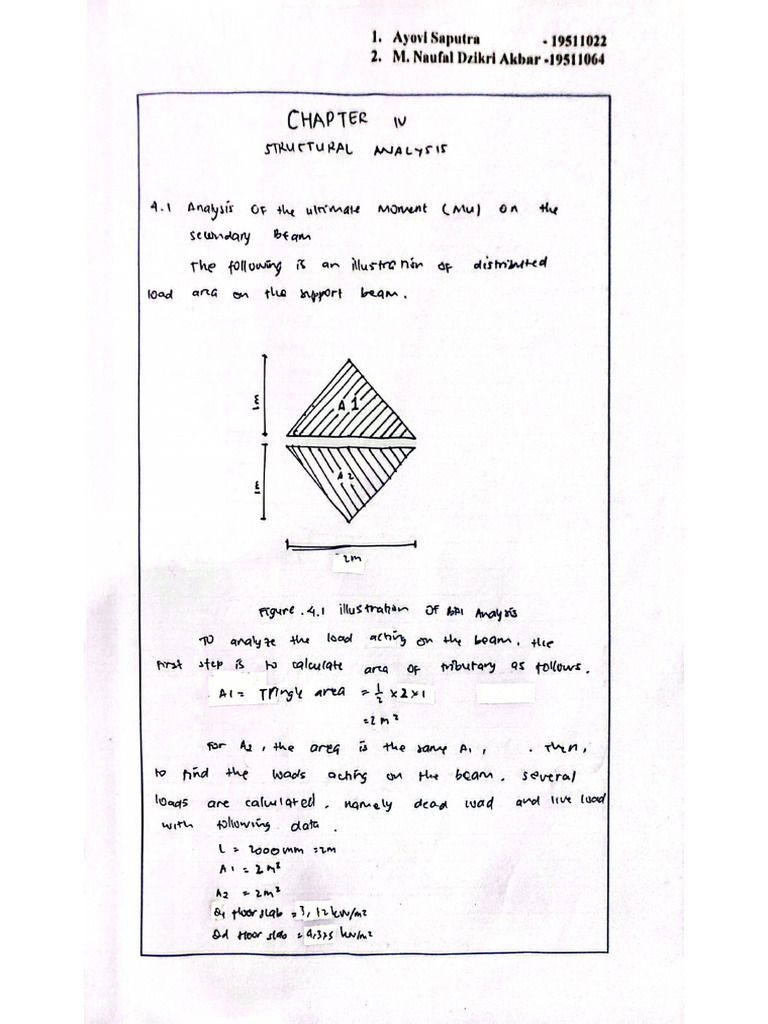 1. Ayovi Saputra - 19511022
2. M. Naufal Dzikri Akbar -19511064
CHAPTER IV
STRUCTURAL ANALYSIS
4.1 Analysis OF the ultimate Moment (Mu) on the
secundary BEAM
The following is an illustration of distributed
load area on the support beam.
1m
A1
1m
A2
2m
Figure .4.1 illustration OF BA1 Analysis
TO analyze the load acting on the beam, the
first step is to calculate area of tributary as follows.
A1 = Tringle area = 1/2 x 2 x 1
= 2 m²
For A2, the area is the same A1, . Then,
to find the loads acting on the beam, several
loads are calculated, namely dead load and live load
with following data.
L = 2000mm = 2m
A1 = 2m²
A2 = 2m²
floor slab = 3,12 kN/m2
Qd floor slab = 4,375 kN/m2